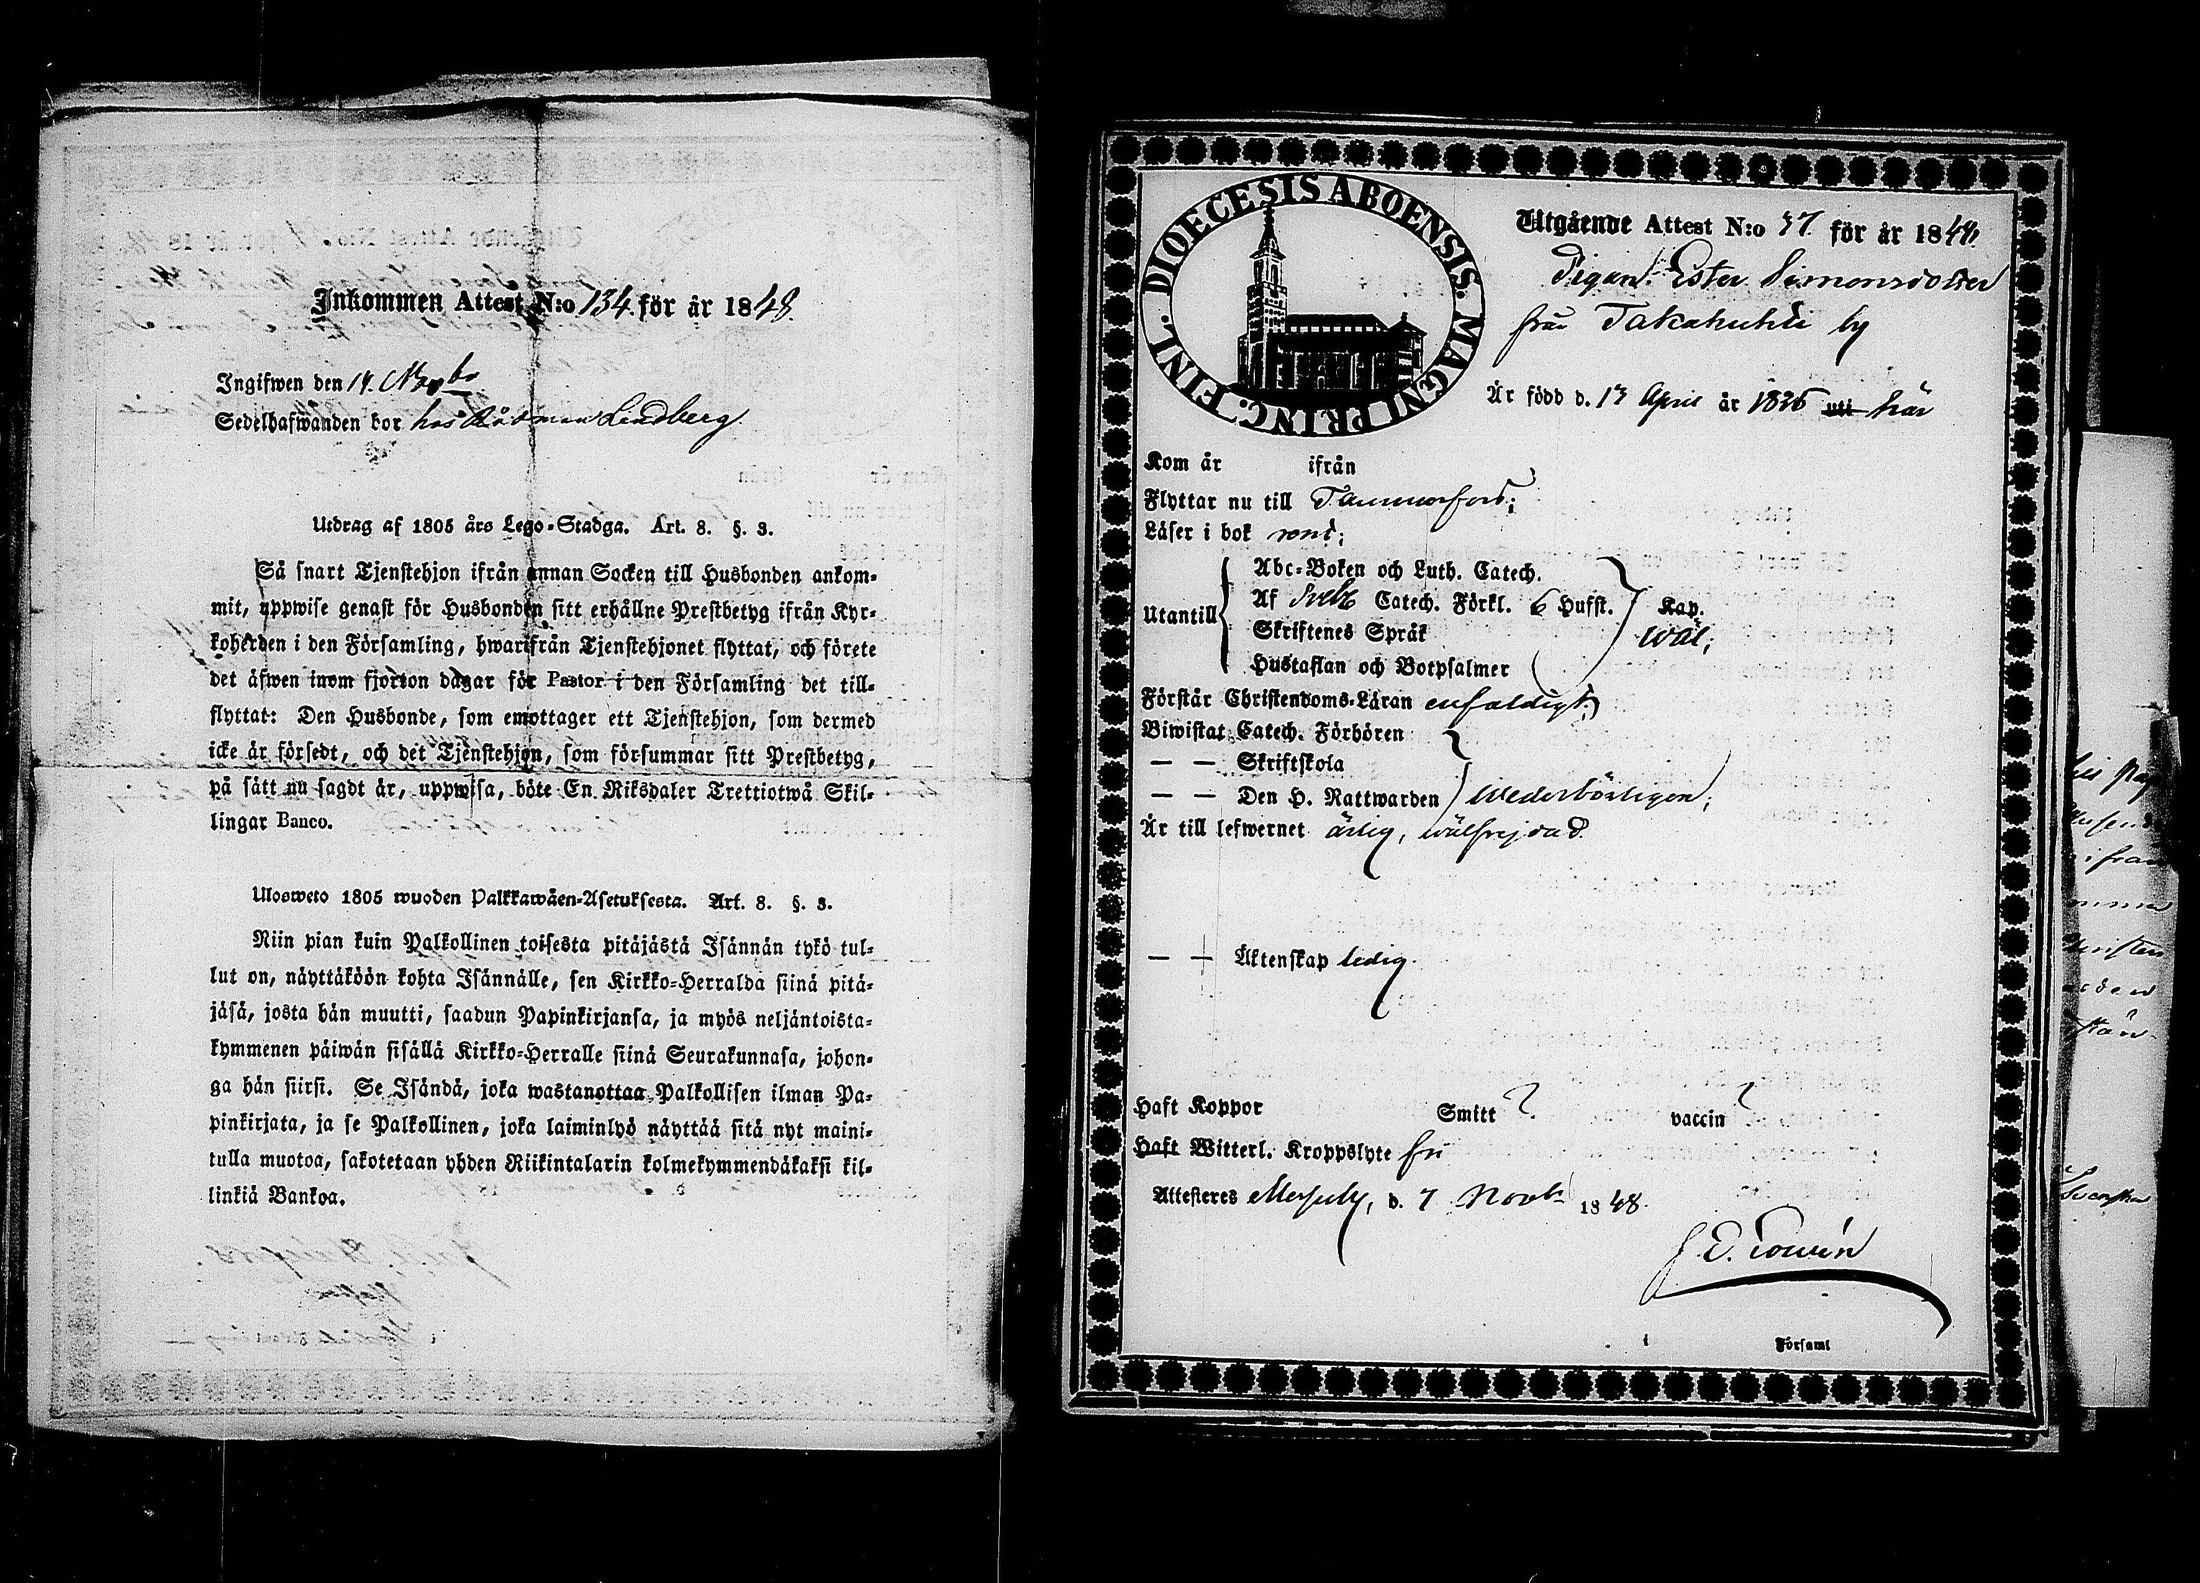 Inkommen Attest N:o 134. för år 1848.
Ingifwen den 14. Novbr
Sedelhafwanden bor hos Rådman Lindberg.
Utdrag af 1805 års Lego-Stadga. Art. 8. §. 3.
Så snart Tjenstehjon ifrån annan Socken till Husbonden ankom-
mit, uppwise genast för Husbonden sitt erhållne Prestbetyg ifrån Kyr-
koherden i den Församling, hwarifrån Tjenstehjonet flyttat, och förete
det äfwen inom fjorton dagar för Pastor i den Församling det till-
flyttat: Den Husbonde, som emottager ett Tjenstehjon, som dermed
icke är försedt, och det Tjenstehjon, som försummar sitt Prestbetyg,
på sätt nu sagdt är, uppwisa, böte En Riksdaler Trettiotwå Skil-
lingar Banco.
Ulosweto 1805 wuoden Palkkawäen-Asetuksesta. Art. 8. §. 3.
Niin pian kuin Palkollinen toisesta pitäjästä Isännän tykö tul-
lut on, näyttäköön kohta Isännälle, sen Kirkko-Herralda siinä pitä-
jäsä, josta hän muutti, saadun Papinkirjansa, ja myös neljäntoista-
kymmenen päiwän sisällä Kirkko-Herralle siinä Seurakunnasa, johon-
ga hän siirsi. Se Isändä, joka wastanottaa Palkollisen ilman Pa-
pinkirjata, ja se Palkollinen, joka laiminlyö näyttää sitä nyt maini-
tulla muotoa, sakotetaan yhden Riikintalarin kolmekymmendäkaksi kil-
linkiä Bankoa.
DIOECESIS ABOENSIS. MAGNI PRINC. FINL.
Utgående Attest N:o 37. för år 1848.
Pigan Ester Simonsdotter
från Takahuhti by
Är född d. 13 April år 1826 uti här
Kom år ifrån
Flyttar nu till Tammerfors;
Läser i bok rent;
Abc-Boken och Luth. Catech.
Utantill Af Sveb. Catech. Förkl. 6 Hufst. Kap.
Skriftenes Språk wäl;
Hustaflan och Botpsalmer
Förstår Christendoms-Läran enfaldigt;
Biwistat Catech. Förhören
— — Skriftskola
— — Den H. Nattwarden Wederbörligen;
Är till lefwernet ärlig, wälfrejdad.
— — Äktenskap ledig.
Haft Koppor Smitt ? vaccin ?
Haft Witterl. Kroppslyte fri
Attesteras Messuby, d. 7 Novbr 1848.
i Församl